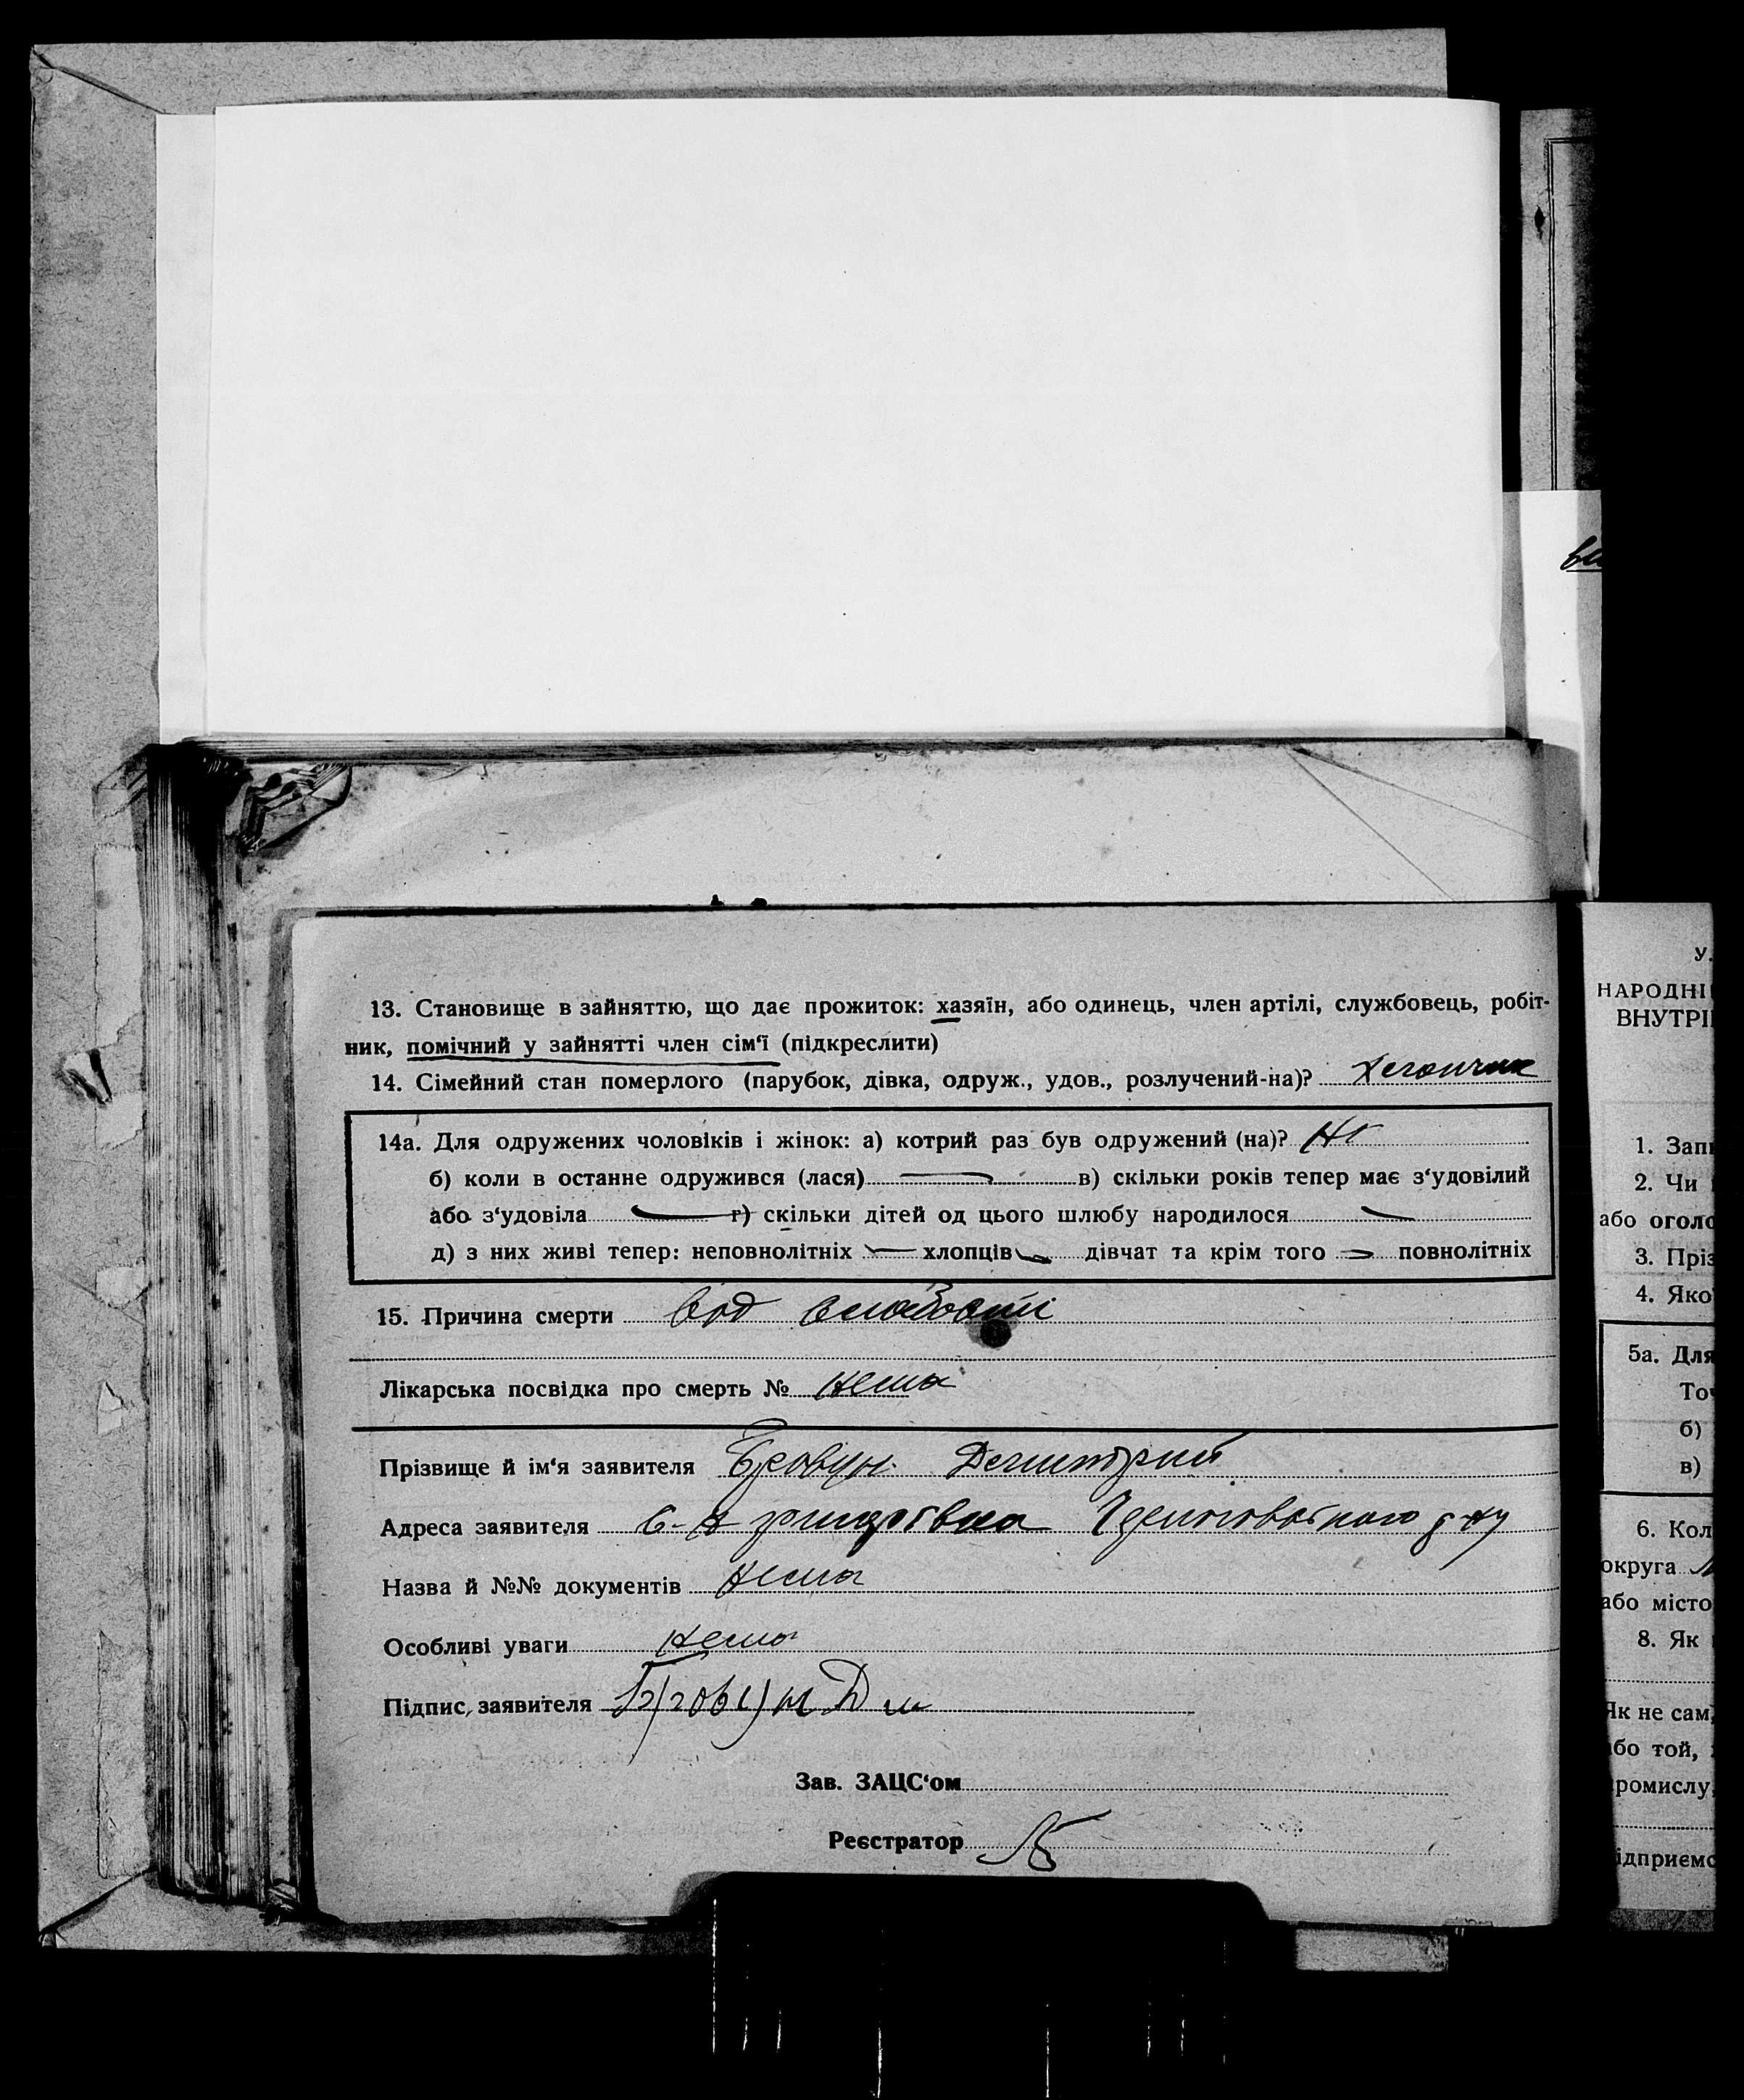 13. Становище в зайняттю, що дає прожиток: хазяїн, або одинець, член артілі, службовець, робіт-
ник, помічний у зайнятті член сім‘ї (підкреслити)
14. Сімейний стан померлого (парубок, дівка, одруж., удов., розлучений-на)?
14а. Для одружених чоловіків і жінок: а) котрий раз був одружений (на)? Ні
б) коли в останне одружився (лася) — в) скільки років тепер має з‘удовілий
або з‘удовіла — г) скільки дітей од цього шлюбу народилося —
д) з них живі тепер: неповнолітніх — хлопців — дівчат та крім того — повнолітніх
15. Причина смерти Від слабости
Лікарська посвідка про смерть № нема
Прізвище й ім‘я заявителя Бровун Демитрий
Адреса заявителя с-
Назва й №№ документів нема
Особливі уваги нема
Підпис, заявителя Бровун Дм
Зав. ЗАЦС‘ом
Реєстратор
У.
НАРОДНІ
ВНУТРІ
1. Запи
2. Чи
або оголо
3. Пріз
4. Яко
5а. Для
Точ
б)
в)
6. Кол
округа
або місто
8. Як
Як не сам,
бо той,
ромислу,
ідприємс